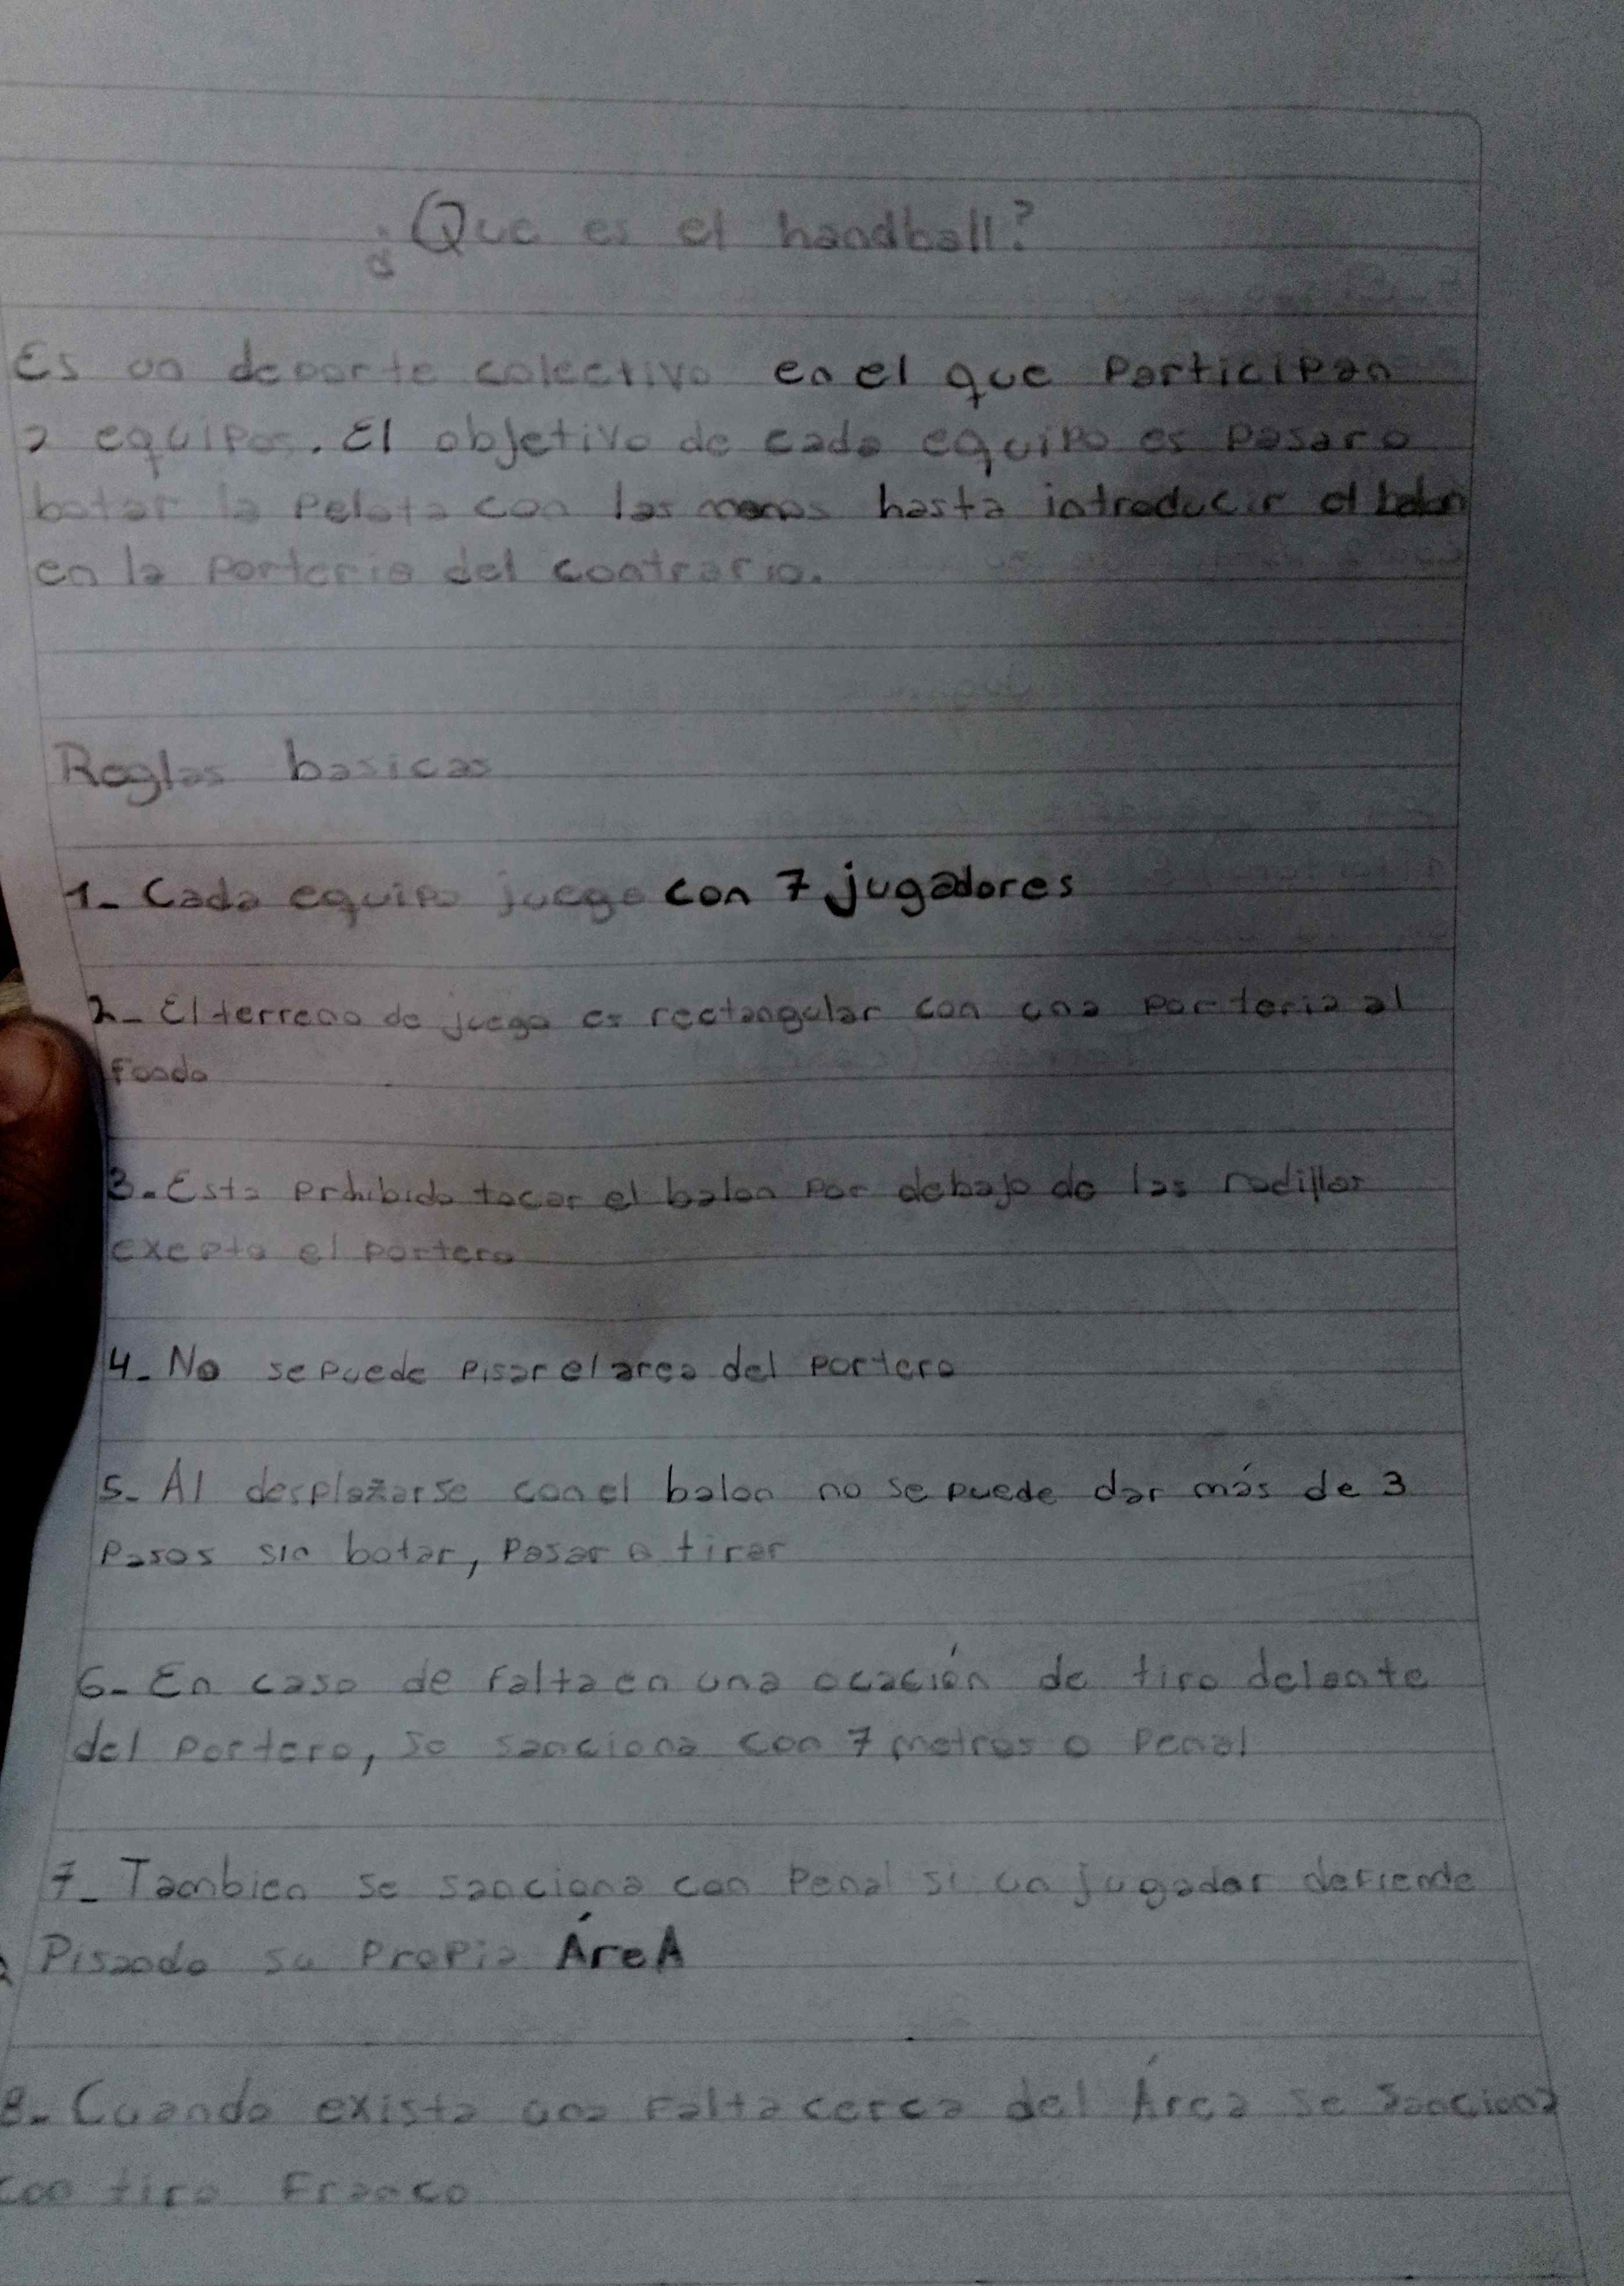 ¿Que es el handball?
Es un deporte colectivo en el que Participan
2 equipos. El objetivo de cada equipo es pasar o
botar la Pelota con las manos hasta introducir el balon
en la porteria del contrario.
Reglas basicas
1- Cada equipo juega con 7 jugadores
2- El terreno de juego es rectangular con una porteria al
Fondo
3. Esta prohibido tocar el balon por debajo de las rodillas
exepto el portero
4- No se puede pisar el area del portero
5- Al desplazarse con el balon no se puede dar más de 3
Pasos sin botar, Pasar o tirar
6- En caso de falta en una ocación de tiro delante
del portero, se sanciona con 7 metros o Penal
7- Tambien se sanciona con Penal si un jugador defiende
Pisando su Propia ÁreA
8- Cuando exista una Falta cerca del Área se Sanciona
con tiro Franco